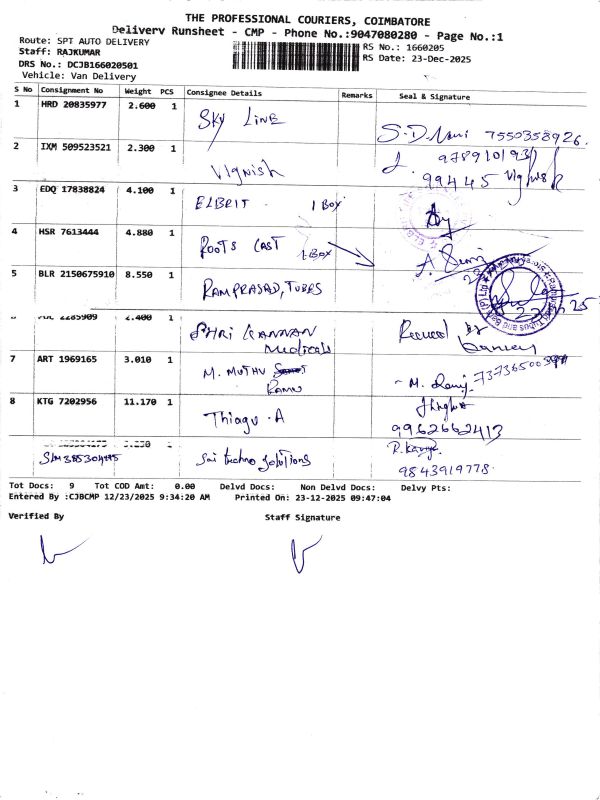 THE PROFESSIONAL COURIERS, COIMBATORE
Delivery Runsheet - CMP - Phone No.:9047080280 - Page No.:1
Route: SPT AUTO DELIVERY
RS No.: 1660205
Staff: RAJKUMAR
RS Date: 23-Dec-2025
DRS No.: DCJB166020501
Vehicle: Van Delivery
S No Consignment No Weight PCS Consignee Details Remarks Seal & Signature
1 HRD 20835977 2.600 1 SKY LINE
7550358926.
2 IXM 509523521 2.300 1 Vignish
99445
3 EDQ 17838824 4.100 1 ELBEIT 1 BOX
4 HSR 7613444 4.880 1 ROOTS CAST 1 BOX
5 BLR 2150675910 8.550 1 RAMPRASAD, TUBES
2285909 2.400 1 SHRI KANNAN
Medicals
7 ART 1969165 3.010 1 M. MUTHU
RAMU
8 KTG 7202956 11.170 1 Thiagu .A
9962662413
1 Sai techno solutions
9843919778.
Tot Docs: 9 Tot COD Amt: 0.00 Delvd Docs: Non Delvd Docs: Delvy Pts:
Entered By :CJBCMP 12/23/2025 9:34:20 AM Printed On: 23-12-2025 09:47:04
Verified By Staff Signature